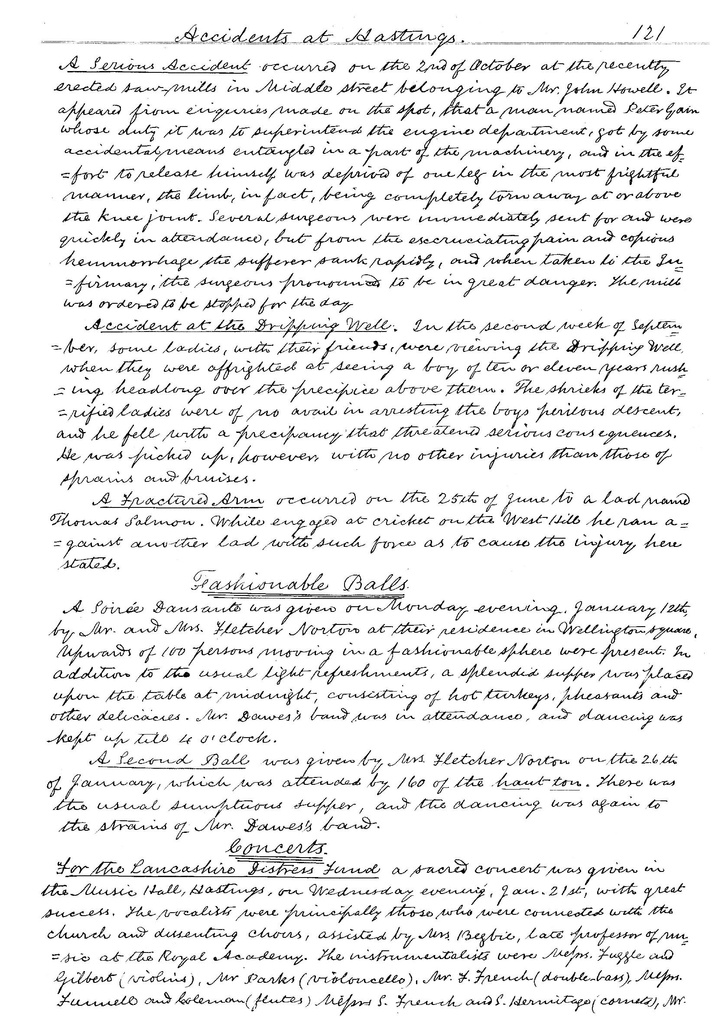 Accidents at Hastings. 121
A Serious Accident occurred on the 2nd of October at the recently
erected saw-mills in Middle street belonging to Mr. John Howell. It
appeared from enquiries made on the spot, that a man named Peter Gain
whose duty it was to superintend the engine department, got by some
accidental means entangled in a part of the machinery, and in the ef=
=fort to release himself was deprived of one leg in the most frightful
manner, the limb, in fact, being completely torn away at or above
the knee joint. Several surgeons were immediately sent for and were
quickly in attendance, but from the escruciating pain and copious
hemmorrhage the sufferer sank rapidly, and when taken to the In=
=firmary, the surgeons pronounced to be in great danger. The mill
was ordered to be stopped for the day
Accident at the Dripping Well. In the second week of Septem
=ber, some ladies, with their friends, were viewing the Dripping Well,
when they were affrighted at seeing a boy of ten or eleven years rush
=ing headlong over the precipice above them. The shrieks of the ter=
=rified ladies were of no avail in arresting the boys perilous descent,
and he fell with a precipancy that threatened serious consequences.
He was picked up, however, with no other injuries than those of
sprains and bruises.
A Fractured Arm occurred on the 25th of June to a lad named
Thomas Salmon. While engaged at cricket on the West Hill he ran a=
=gainst another lad with such force as to cause the injury here
stated.
Fashionable Balls.
A Soirée Dansante was given on Monday evening, January 12th,
by Mr. and Mrs. Fletcher Norton at their residence in Wellington square.
Upwards of 100 persons moving in a fashionable sphere were present. In
addition to the usual light refreshments, a splendid supper was placed
upon the table at midnight, consisting of hot turkeys, pheasants and
other delicacies. Mr. Dawes's band was in attendance, and dancing was
kept up till 4 o'clock.
A Second Ball was given by Mrs Fletcher Norton on the 26th
of January, which was attended by 160 of the haut ton. There was
the usual sumptuous supper, and the dancing was again to
the strains of Mr. Dawes's band.
Concerts.
For the Lancashire Distress Fund a sacred concert was given in
the Music Hall, Hastings, on Wednesday evening, Jan. 21st, with great
success. The vocalists were principally those who were connected with the
church and dissenting choirs, assisted by Mrs Begbie, late professor of mu=
=sic at the Royal Academy. The instrumentalists were Messrs. Fuggle and
Gilbert (violins), Mr Parks (violoncello), Mr. F. French (double-bass), Messrs.
Funnell and Coleman (flutes) Messrs S. French and S. Hermitage (cornets), Mr.